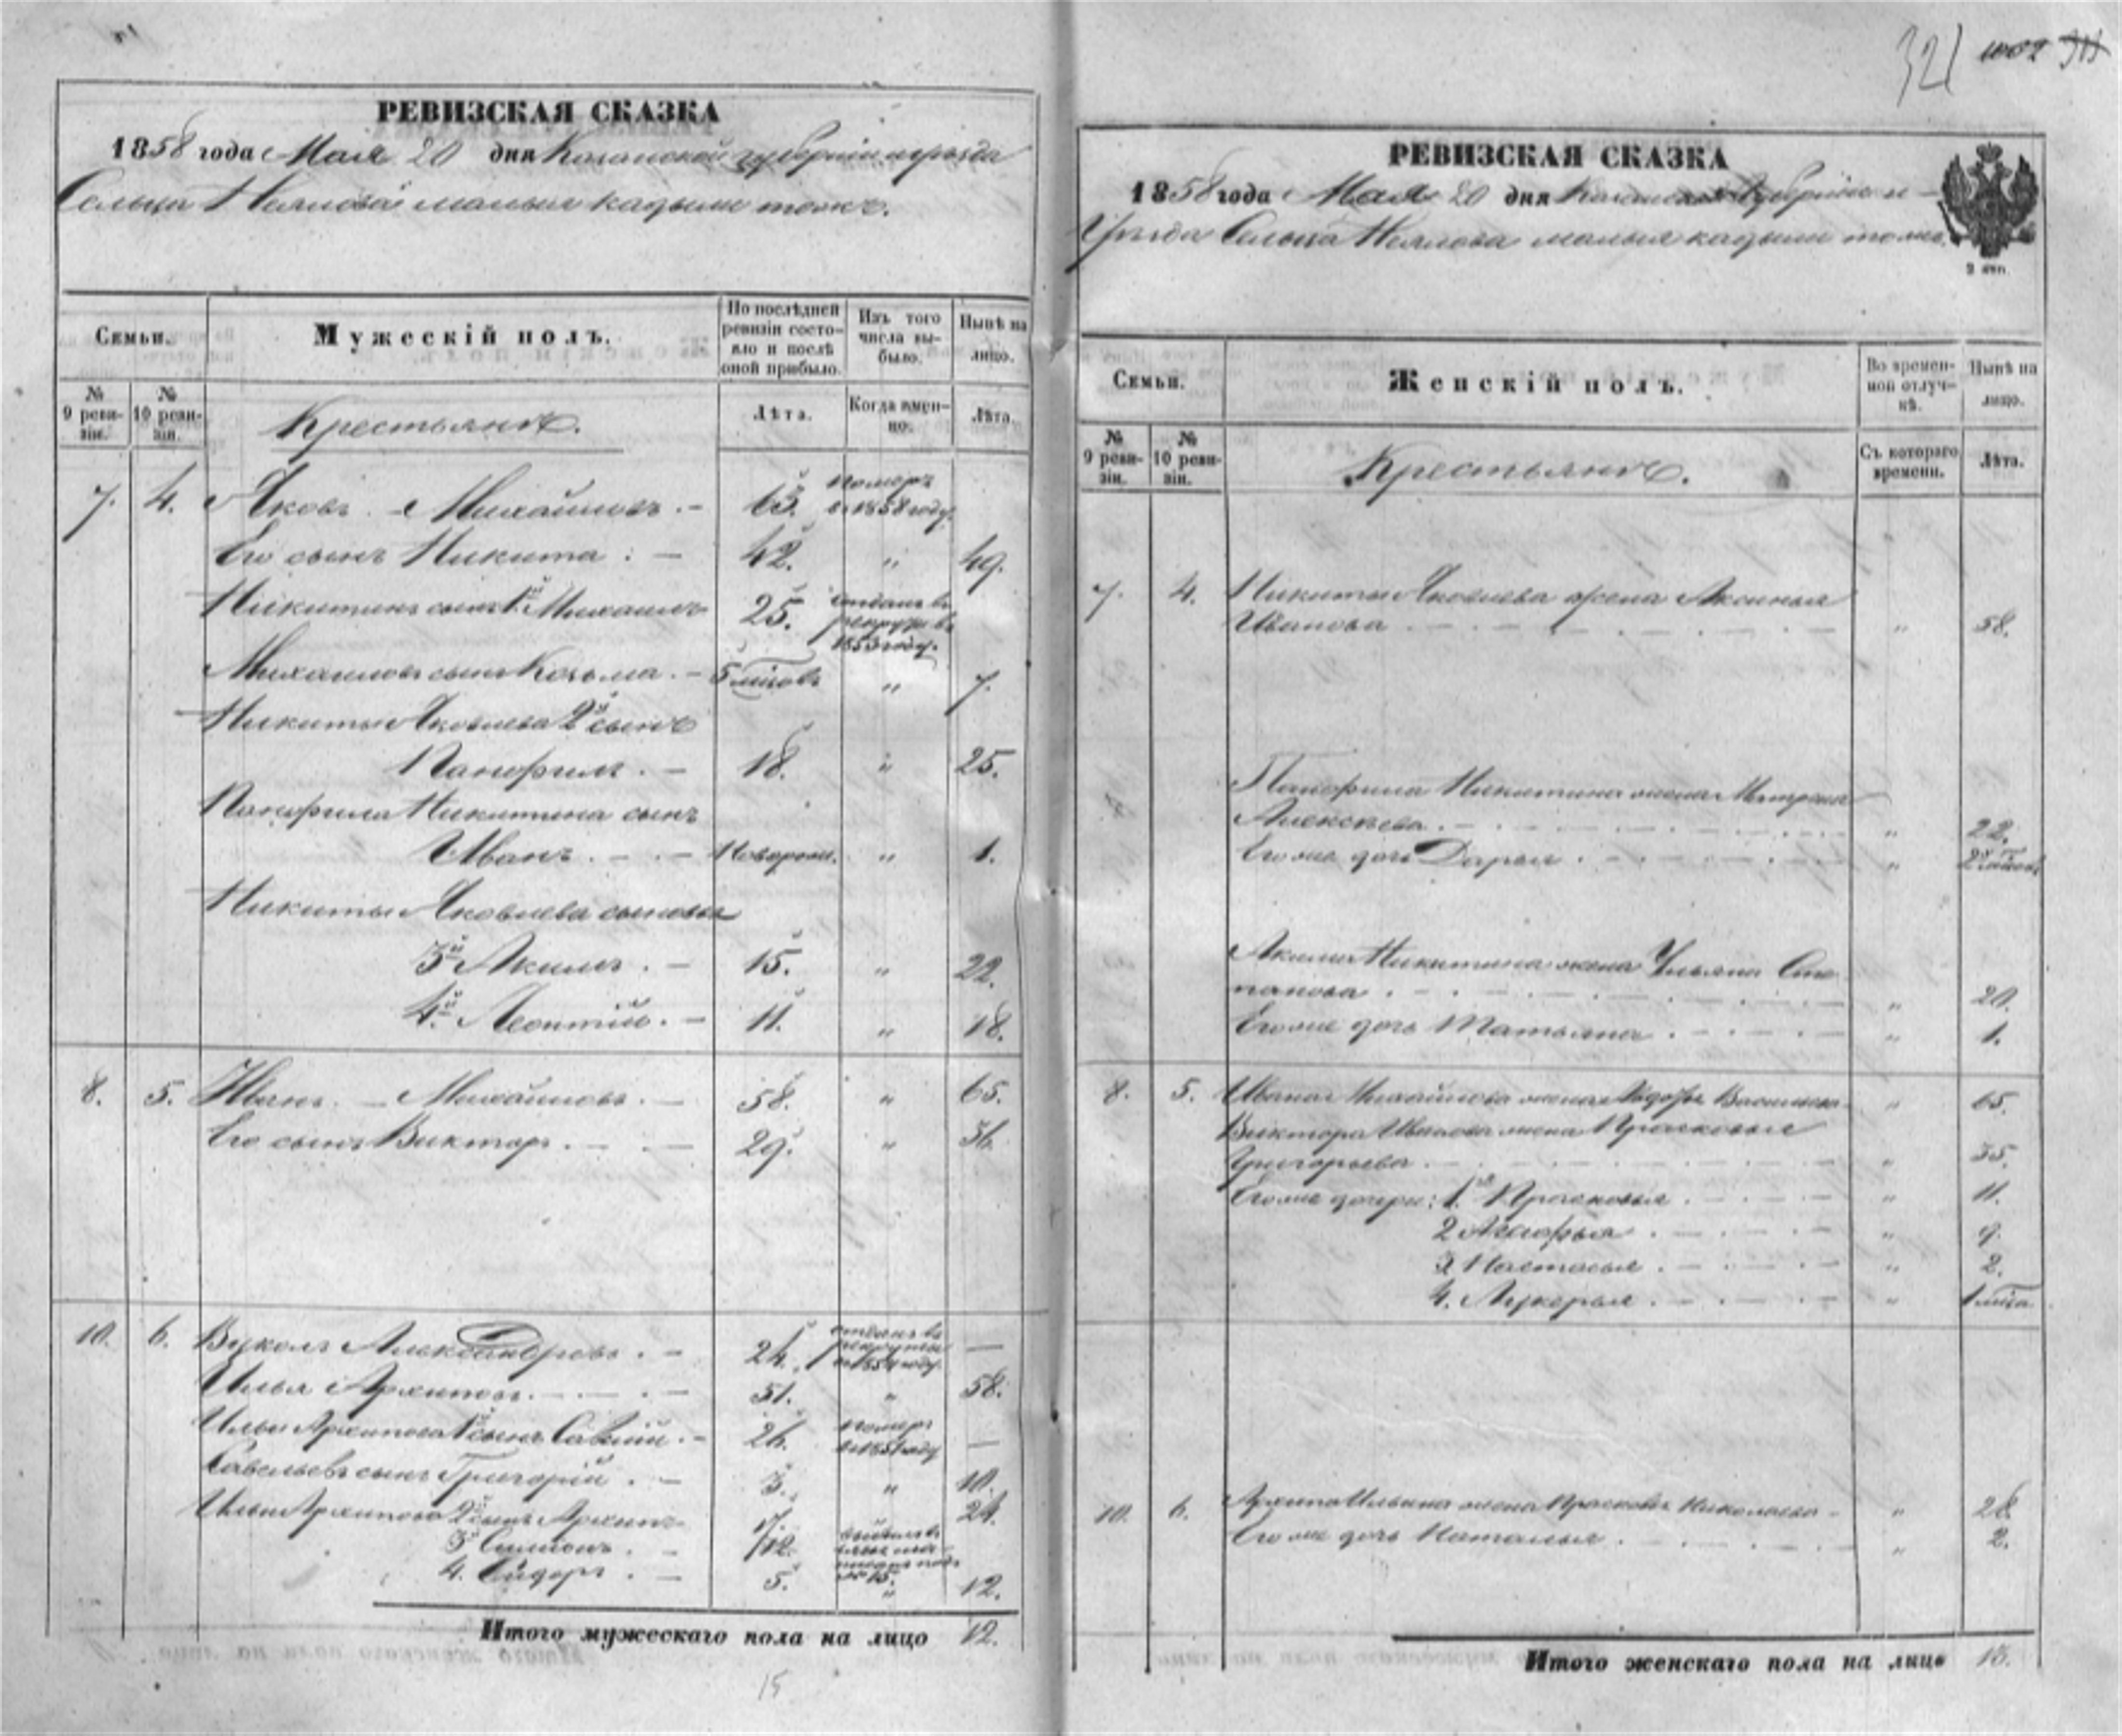 321
РЕВИЗСКАЯ СКАЗКА
1858 года Мая 20 дня Казанской губернии и уезда
Сельца Неялова малыя кадыли тожъ.
Семьи.
Мужескій полъ.
По послѣдней ревизіи состояло и послѣ оной прибыло.
Изъ того числа выбыло.
Нынѣ на лицо.
№ 9 ревизіи.
№ 10 ревизіи.
Крестьяне.
Лѣта.
Когда именно.
Лѣта.
7. 4. Яковъ Михайловъ. 65. померъ в 1858 году.
Его сынъ Никита. 42. " 49.
Никитинъ сынъ 1й Михаилъ 25. отданъ въ рекруты в 1853 году.
Михаиловъ сынъ Козьма. 5 мѣсяцовъ " 7.
Никиты Яковлева 2й сынъ
Панфилъ. 18. " 25.
Панфила Никитина сынъ
Иванъ. Новорож. " 1.
Никиты Яковлева сыновья
3й Акимъ. 15. " 22.
4й Леонтій. 11. " 18.
8. 5. Иванъ Михайловъ. 58. " 65.
Его сынъ Викторъ. 29. " 36.
10. 6. Вуколъ Александровъ. 24. отданъ въ рекруты в 1854 году. —
Илья Архиповъ. 51. " 58.
Ильи Архипова 1й сынъ Савелій. 26. померъ в 1851 году —
Савельевъ сынъ Григорій. 3. " 10.
Ильи Архипова 2й сынъ Архипъ 17. 24.
3й Симионъ. 12.
4. Сидоръ. 5. " 12.
Итого мужескаго пола на лицо 12.
15
РЕВИЗСКАЯ СКАЗКА
1858 года Мая 20 дня Казанской губернии и
Уезда Сельца Неялова малыя кадыли тожъ.
Семьи.
Женскій полъ.
Во временной отлучкѣ.
Нынѣ на лицо.
№ 9 ревизіи.
№ 10 ревизіи.
Крестьяне.
Съ котораго времени.
Лѣта.
7. 4. Никиты Яковлева жена Аксинья
Иванова " 58.
Панфила Никитина жена Матрена
Алексѣева. " 22.
Его же дочь Дарья. "
Акима Никитина жена Ульяна Сте
панова. " 20.
Его же дочь Татьяна. " 1.
8. 5. Ивана Михайлова жена Васильева " 65.
Виктора Иванова жена Прасковья
Григорьева. " 35.
Его же дочери: 1. Прасковья. " 11.
2 Агафья. " 9.
3 Настасья. " 2.
4. Лукерья. "
10. 6. Архипа Ильина жена Прасковья Николаева " 28.
Его же дочь Наталья. " 2.
Итого женскаго пола на лицо 13.